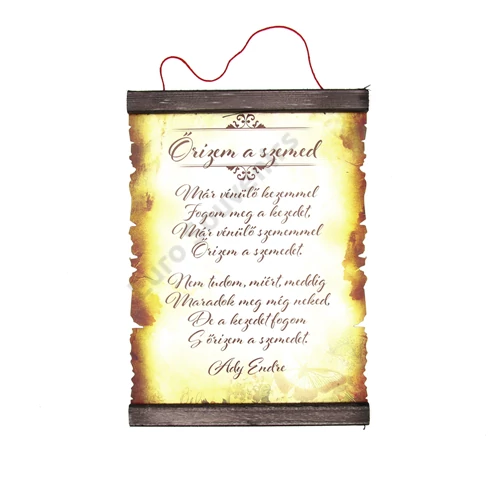 Őrizem a szemed
Már vénülő kezemmel
Fogom meg a kezedet,
Már vénülő szememmel
Őrizem a szemedet.
Nem tudom, miért, meddig
Maradok meg még neked,
De a kezedet fogom
S őrizem a szemedet.
Ady Endre